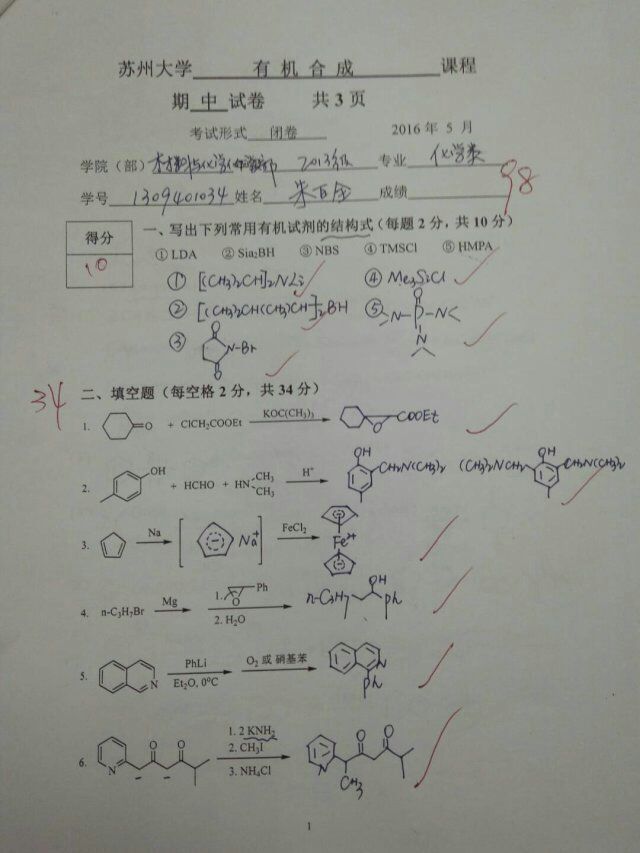 苏州大学 有机合成 课程
期 中 试卷 共3页
考试形式 闭卷 2016年5月
学院(部) 2013级 专业 化学类
学号 1309401034 姓名 成绩 98
得分
10
一、写出下列常用有机试剂的结构式(每题2分,共10分)
① LDA ② Sia₂BH ③ NBS ④ TMSCl ⑤ HMPA
① [(CH₃)₂CH]₂NLi ④ Me₃SiCl
② [(CH₃)₂CH(CH₃)CH]₂BH ⑤ O N P N N
③ O N-Br O
34
二、填空题(每空格2分,共34分)
1. O + ClCH₂COOEt KOC(CH₃)₃ O COOEt
2. OH + HCHO + HN CH₃ CH₃ H⁺ OH CH₂N(CH₃)₂ (CH₃)₂NCH₂ OH CH₂N(CH₃)₂
3. Na Na⁺ FeCl₂ Fe²⁺
4. n-C₃H₇Br Mg 1. O Ph 2. H₂O n-C₃H₇ OH Ph
5. N PhLi Et₂O, 0⁰C O₂ 或 硝基苯 N Ph
6. N O O 1. 2 KNH₂ 2. CH₃I 3. NH₄Cl N O O CH₃
1